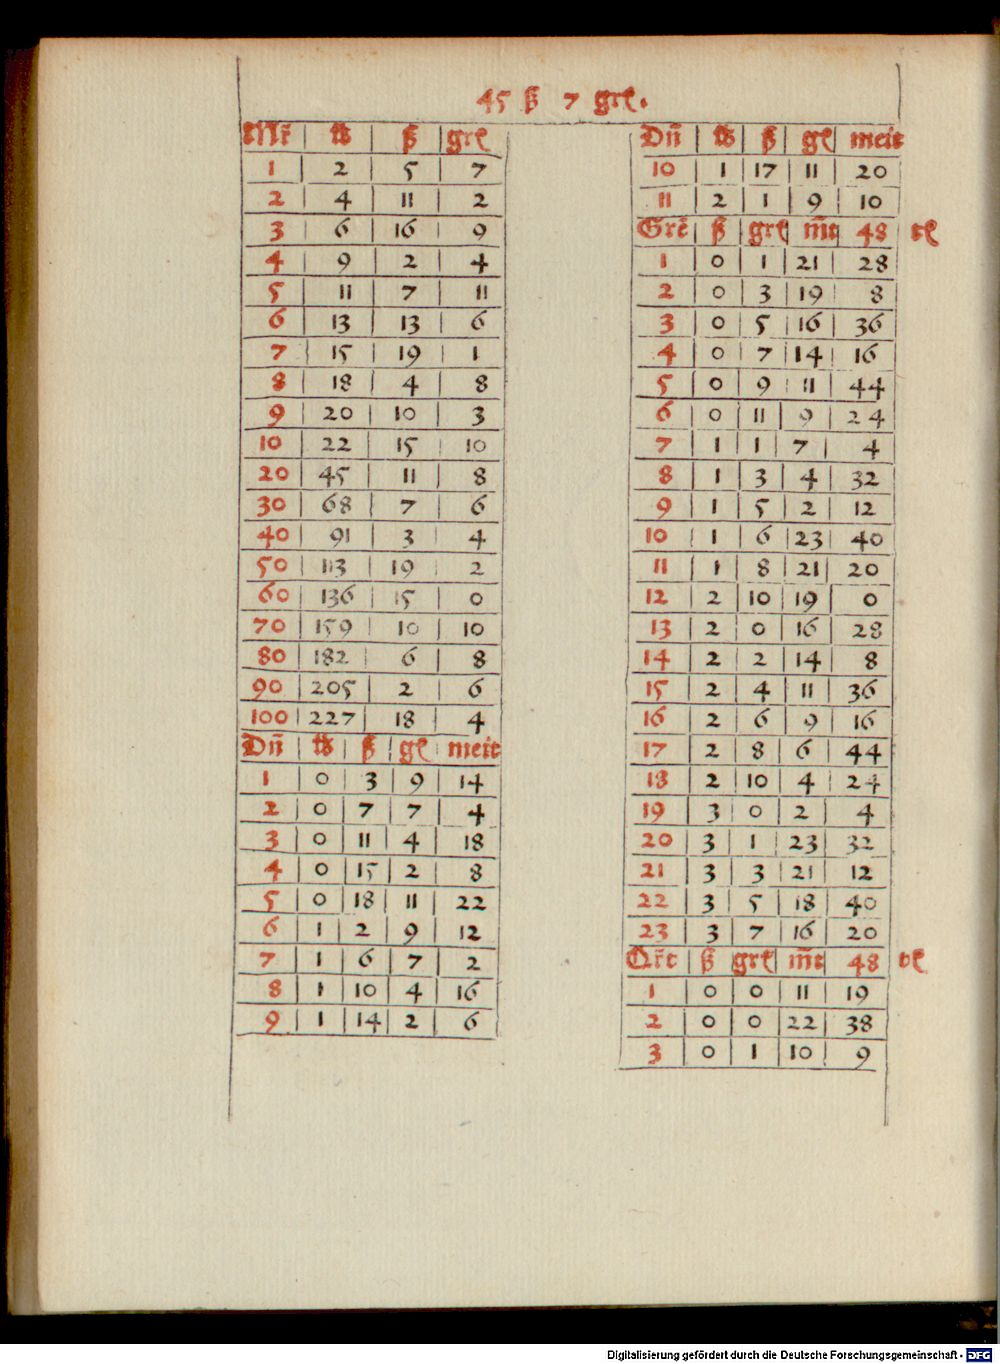 45 ß 7 grł.
Mr̄ | tt | ß | grł
1 | 2 | 5 | 7
2 | 4 | 11 | 2
3 | 6 | 16 | 9
4 | 9 | 2 | 4
5 | 11 | 7 | 11
6 | 13 | 13 | 6
7 | 15 | 19 | 1
8 | 18 | 4 | 8
9 | 20 | 10 | 3
10 | 22 | 15 | 10
20 | 45 | 11 | 8
30 | 68 | 7 | 6
40 | 91 | 3 | 4
50 | 113 | 19 | 2
60 | 136 | 15 | 0
70 | 159 | 10 | 10
80 | 182 | 6 | 8
90 | 205 | 2 | 6
100 | 227 | 18 | 4
Dn̄ | tt | ß | gł | meit
1 | 0 | 3 | 9 | 14
2 | 0 | 7 | 7 | 4
3 | 0 | 11 | 4 | 18
4 | 0 | 15 | 2 | 8
5 | 0 | 18 | 11 | 22
6 | 1 | 2 | 9 | 12
7 | 1 | 6 | 7 | 2
8 | 1 | 10 | 4 | 16
9 | 1 | 14 | 2 | 6
Dn̄ | tt | ß | gł | meit
10 | 1 | 17 | 11 | 20
11 | 2 | 1 | 9 | 10
Grē | ß | grł | m̄t | 48 tł
1 | 0 | 1 | 21 | 28
2 | 0 | 3 | 19 | 8
3 | 0 | 5 | 16 | 36
4 | 0 | 7 | 14 | 16
5 | 0 | 9 | 11 | 44
6 | 0 | 11 | 9 | 24
7 | 1 | 1 | 7 | 4
8 | 1 | 3 | 4 | 32
9 | 1 | 5 | 2 | 12
10 | 1 | 6 | 23 | 40
11 | 1 | 8 | 21 | 20
12 | 2 | 10 | 19 | 0
13 | 2 | 0 | 16 | 28
14 | 2 | 2 | 14 | 8
15 | 2 | 4 | 11 | 36
16 | 2 | 6 | 9 | 16
17 | 2 | 8 | 6 | 44
18 | 2 | 10 | 4 | 24
19 | 3 | 0 | 2 | 4
20 | 3 | 1 | 23 | 32
21 | 3 | 3 | 21 | 12
22 | 3 | 5 | 18 | 40
23 | 3 | 7 | 16 | 20
Qr̄t | ß | grł | m̄t | 48 tł
1 | 0 | 0 | 11 | 19
2 | 0 | 0 | 22 | 38
3 | 0 | 1 | 10 | 9
Digitalisierung gefördert durch die Deutsche Forschungsgemeinschaft - DFG